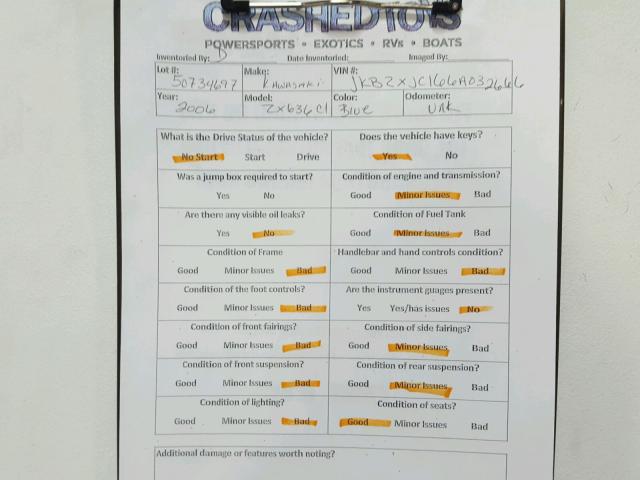 CRASHEDTOYS
POWERSPORTS • EXOTICS • RVs • BOATS
Inventoried By: D Date Inventoried: Imaged By:
Lot #: 50734697 Make: KAWASAKI VIN #: JKBZXJC166A032666
Year: 2006 Model: ZX636C1 Color: Blue Odometer: UNK
What is the Drive Status of the vehicle? Does the vehicle have keys?
No Start Start Drive Yes No
Was a jump box required to start? Condition of engine and transmission?
Yes No Good Minor Issues Bad
Are there any visible oil leaks? Condition of Fuel Tank
Yes No Good Minor Issues Bad
Condition of Frame Handlebar and hand controls condition?
Good Minor Issues Bad Good Minor Issues Bad
Condition of the foot controls? Are the instrument guages present?
Good Minor Issues Bad Yes Yes/has issues No
Condition of front fairings? Condition of side fairings?
Good Minor Issues Bad Good Minor Issues Bad
Condition of front suspension? Condition of rear suspension?
Good Minor Issues Bad Good Minor Issues Bad
Condition of lighting? Condition of seats?
Good Minor Issues Bad Good Minor Issues Bad
Additional damage or features worth noting?